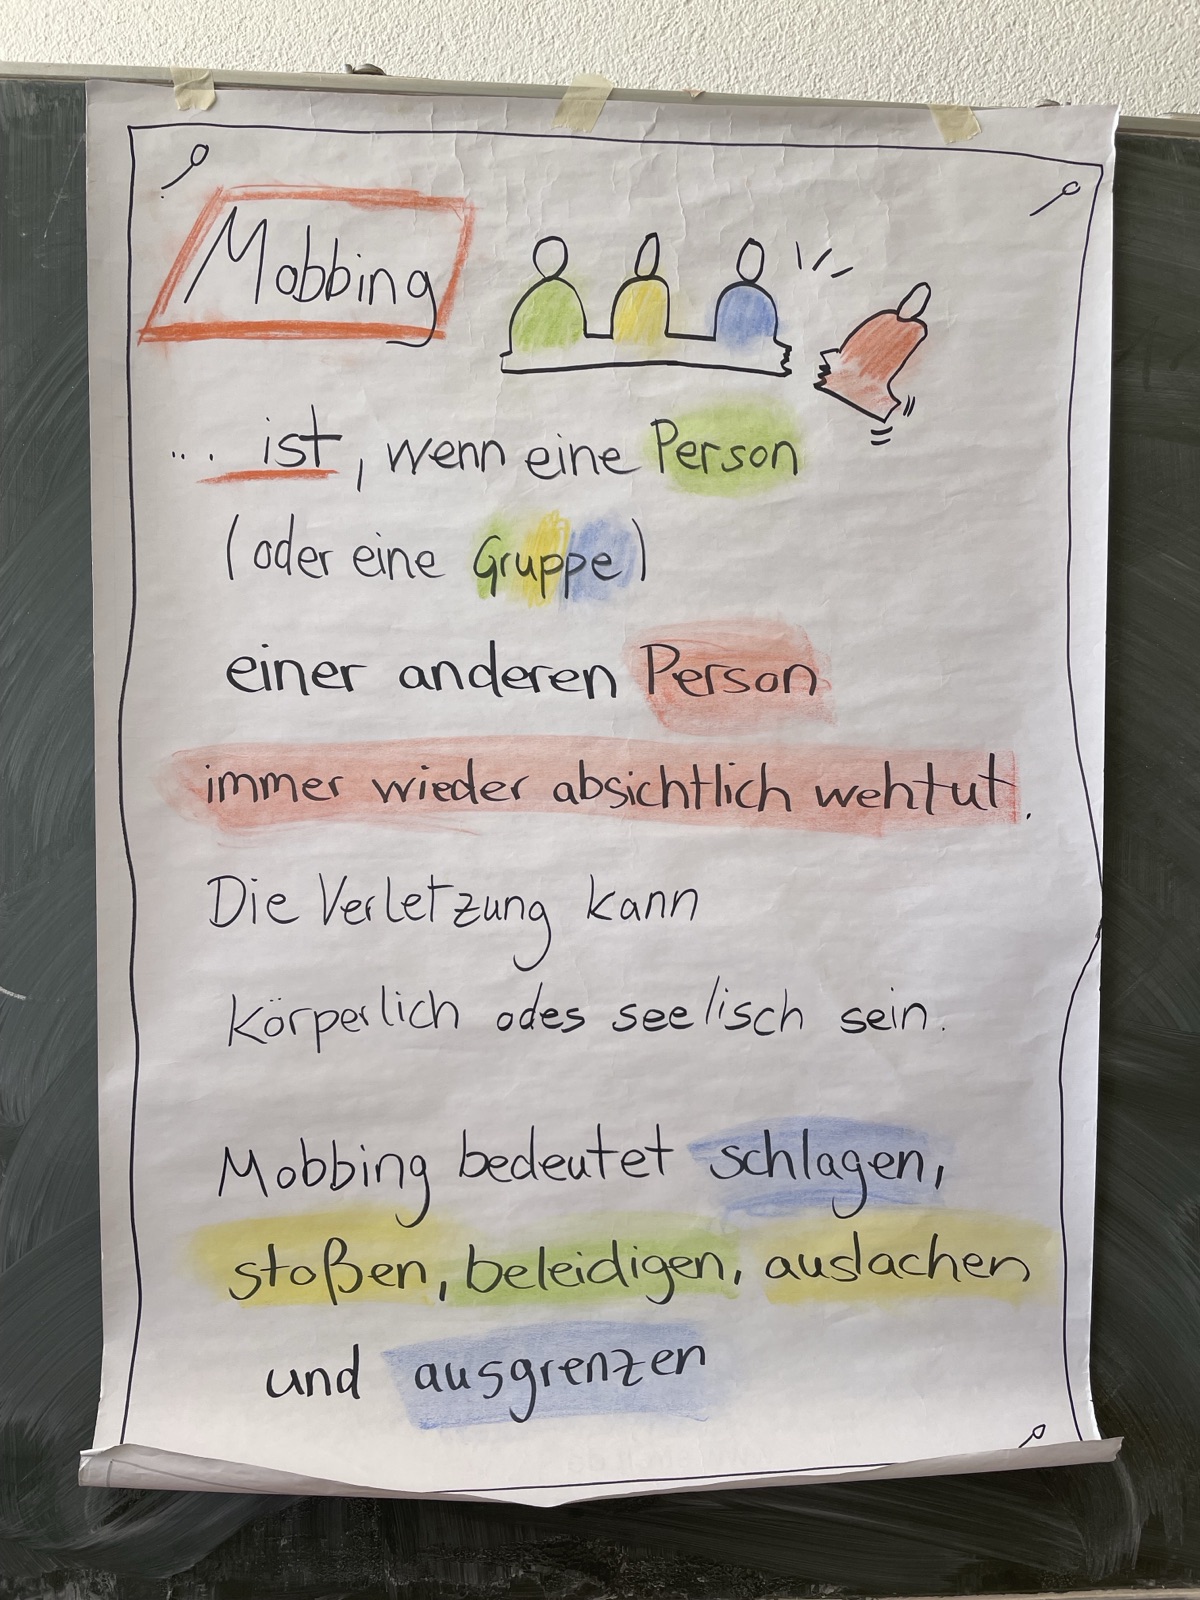 Mobbing
... ist, wenn eine Person
(oder eine Gruppe)
einer anderen Person
immer wieder absichtlich wehtut.
Die Verletzung kann
körperlich oder seelisch sein.
Mobbing bedeutet schlagen,
stoßen, beleidigen, auslachen
und ausgrenzen